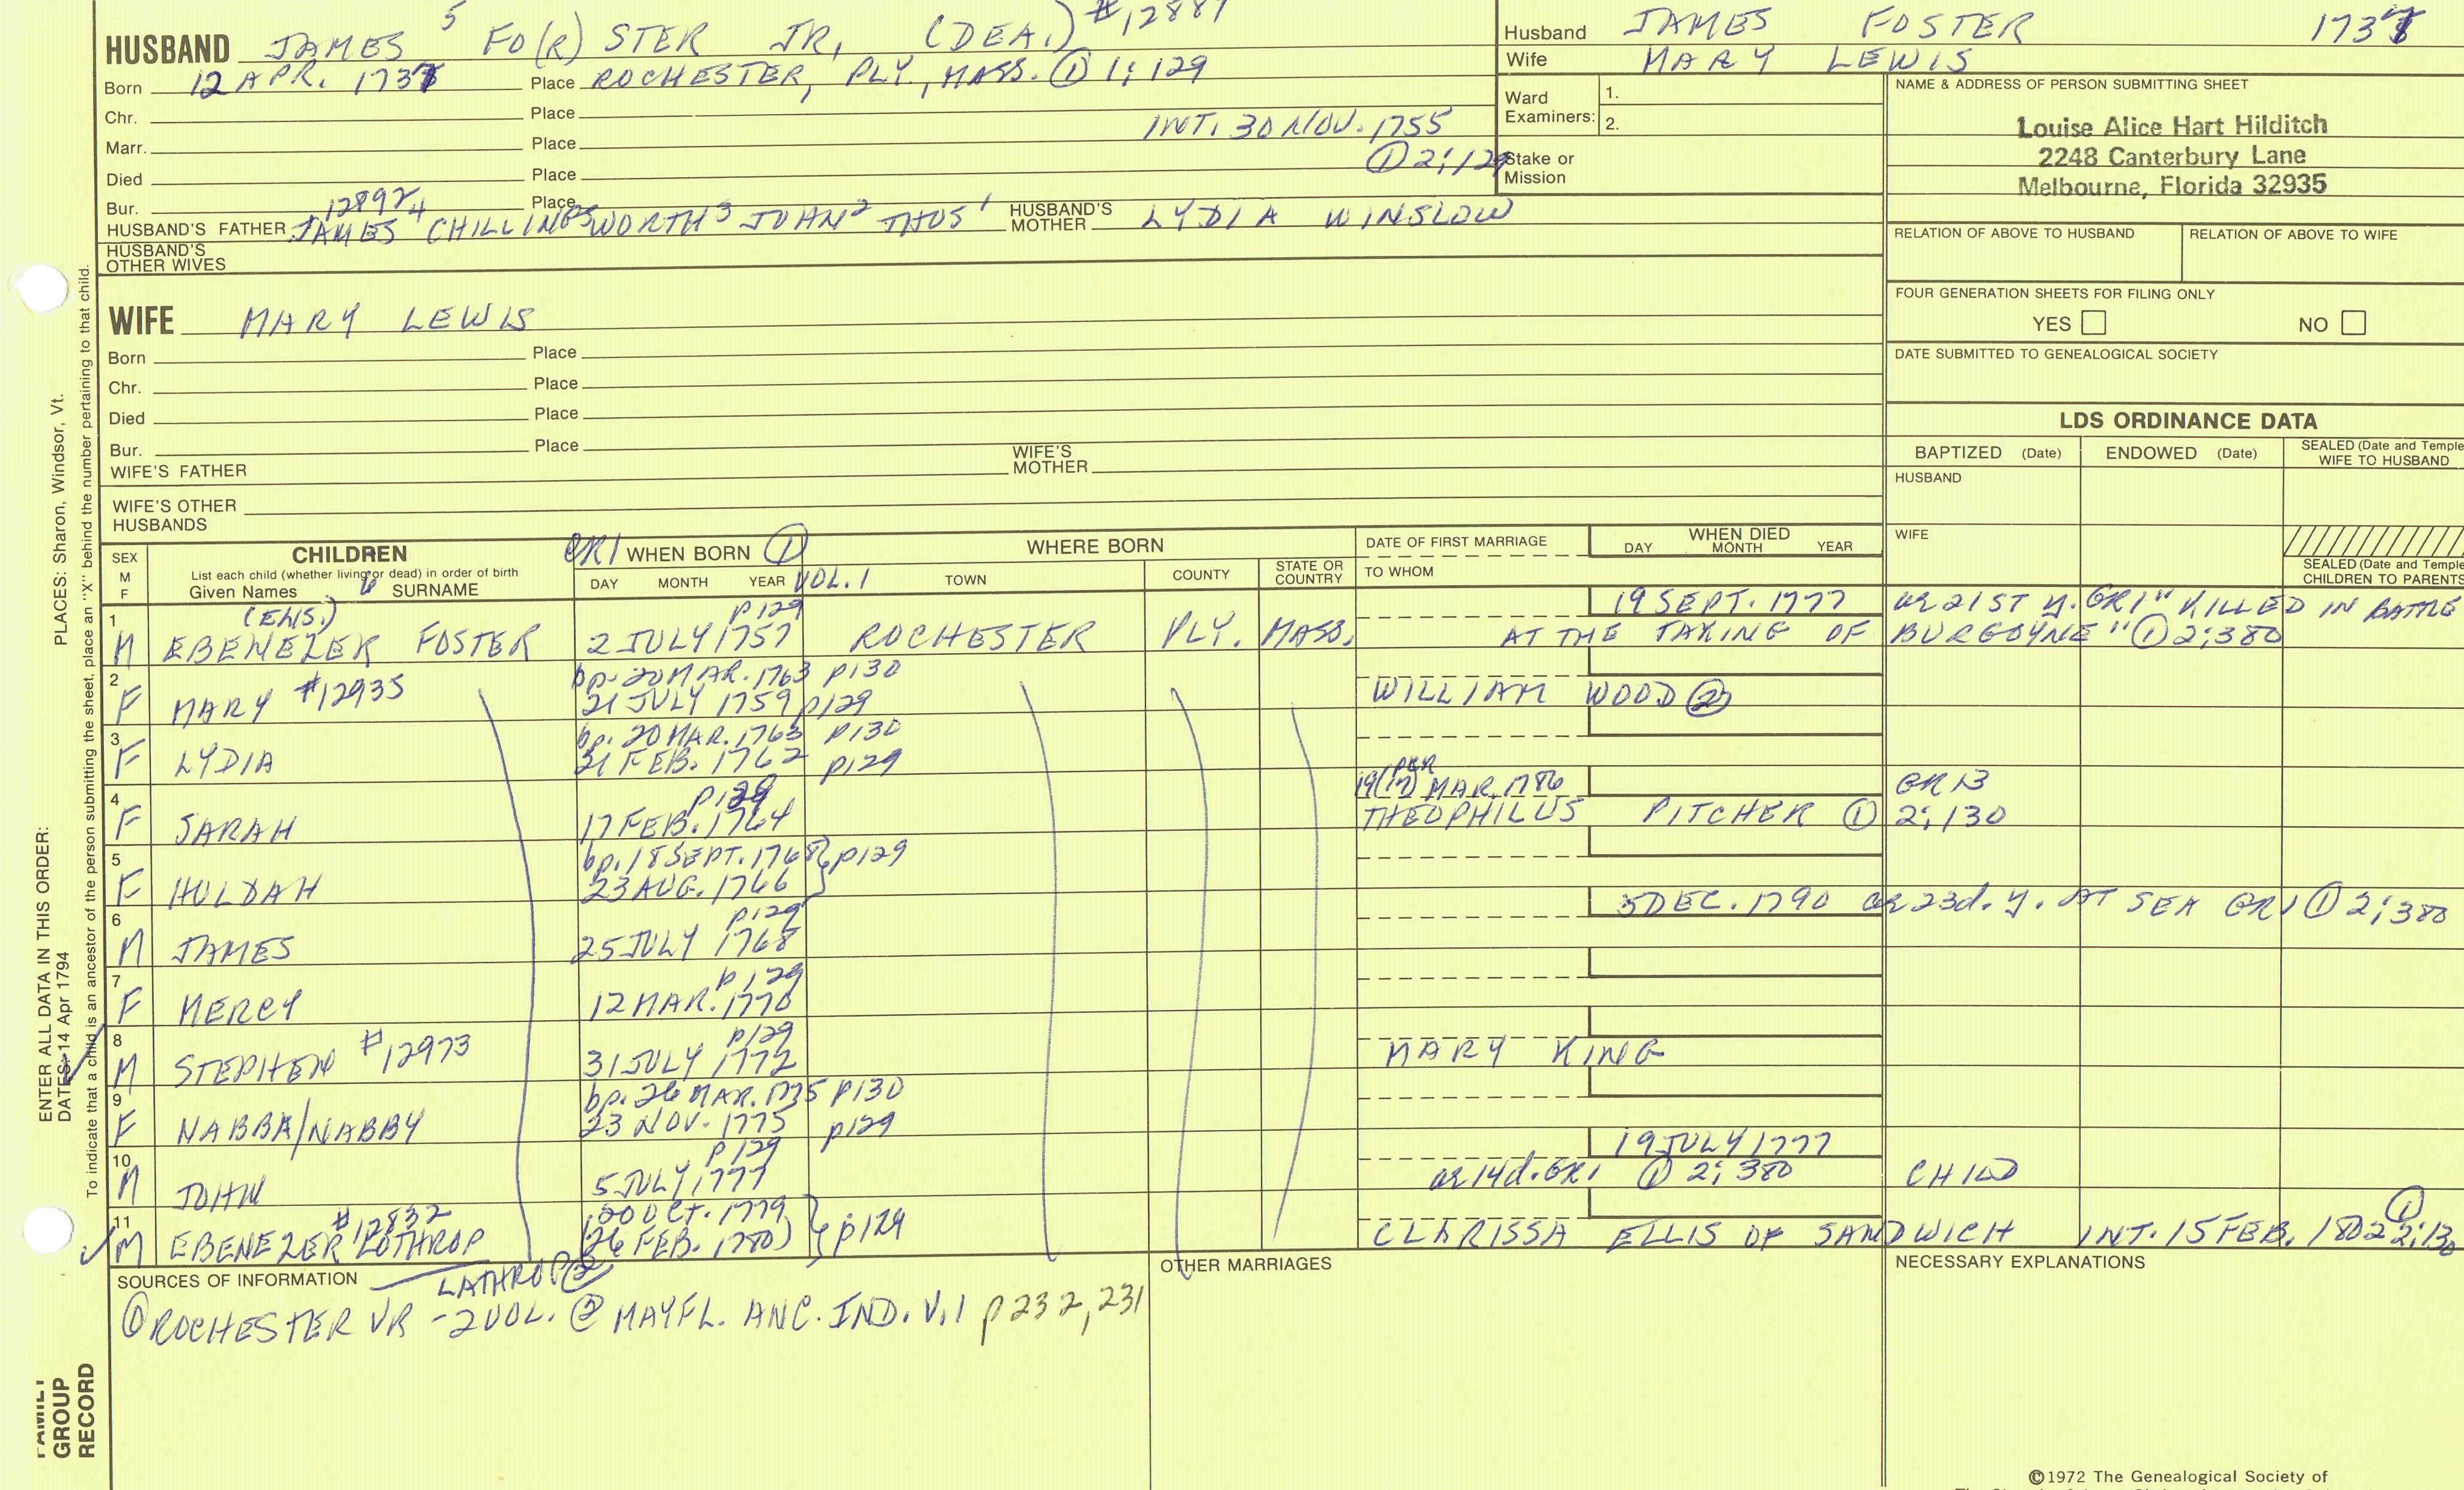 HUSBAND JAMES 5 FO(R)STER JR, (DEA.)
Born 12 APR. Place ROCHESTER, PLY., MASS. ① 1;129
Chr. Place
INT. 30 NOV. 1755
Marr. Place
① 2;129
Died Place
Bur. Place
HUSBAND'S FATHER JAMES 4 CHILLINGSWORTH 3 JOHN 2 THOS 1 HUSBAND'S MOTHER LYDIA WINSLOW
HUSBAND'S OTHER WIVES
Husband JAMES FOSTER
Wife MARY LEWIS
Ward Examiners: 1.
2.
Stake or Mission
NAME & ADDRESS OF PERSON SUBMITTING SHEET
Louise Alice Hart Hilditch
2248 Canterbury Lane
Melbourne, Florida 32935
RELATION OF ABOVE TO HUSBAND RELATION OF ABOVE TO WIFE
FOUR GENERATION SHEETS FOR FILING ONLY
YES NO
DATE SUBMITTED TO GENEALOGICAL SOCIETY
WIFE MARY LEWIS
Born Place
Chr. Place
Died Place
Bur. Place
WIFE'S FATHER WIFE'S MOTHER
WIFE'S OTHER HUSBANDS
LDS ORDINANCE DATA
BAPTIZED (Date) ENDOWED (Date) SEALED (Date and Temple) WIFE TO HUSBAND
HUSBAND
WIFE
SEALED (Date and Temple) CHILDREN TO PARENTS
SEX M F
CHILDREN
List each child (whether living or dead) in order of birth
Given Names 6 SURNAME
WHEN BORN ①
DAY MONTH YEAR VOL. 1
WHERE BORN
TOWN COUNTY STATE OR COUNTRY
DATE OF FIRST MARRIAGE
TO WHOM
WHEN DIED
DAY MONTH YEAR
1 (ENS.) p129 19 SEPT. 1777 ae 21ST y. GR1 "KILLED IN BATTLE
M EBENEZER FOSTER 2 JULY 1757 ROCHESTER PLY. MASS. AT THE TAKING OF BURGOYNE" ① 2;380
2 bp. 20 MAR. 1763 p130
F MARY #12935 21 JULY 1759 p129 WILLIAM WOOD ②
3 bp. 20 MAR. 1763 p130
F LYDIA 21 FEB. 1762 p129
4 p129 19(17) MAR. 1786 GR13
F SARAH 17 FEB. 1764 THEOPHILUS PITCHER ① 2;130
5 bp. 18 SEPT. 1768 p129
F HULDAH 23 AUG. 1766
6 p129 5 DEC. 1790 ae 23d. y. AT SEA GR1 ① 2;380
M JAMES 25 JULY 1768
7 p129
F MERCY 12 MAR. 1770
8 p129
M STEPHEN #12973 31 JULY 1772 MARY KING
9 bp. 26 MAR. 1775 p130
F NABBA/NABBY 23 NOV. 1775 p129
10 p129 19 JULY 1777
M JOHN 5 JULY 1777 ae 14d. GR1 ① 2;380 CHILD
11 #12832 OCT. 1779
M EBENEZER LOTHROP (26 FEB. 1780) p129 CLARISSA ELLIS OF SANDWICH INT. 15 FEB. 1802 ① 2;130
SOURCES OF INFORMATION LATHROP ②
① ROCHESTER VR - 2 VOL. ② MAYFL. ANC. IND. V.1 p232, 231
OTHER MARRIAGES
NECESSARY EXPLANATIONS
©1972 The Genealogical Society of
ENTER ALL DATA IN THIS ORDER:
DATES: 14 Apr 1794 PLACES: Sharon, Windsor, Vt.
To indicate that a child is an ancestor of the person submitting the sheet, place an "X" behind the number pertaining to that child.
FAMILY GROUP RECORD